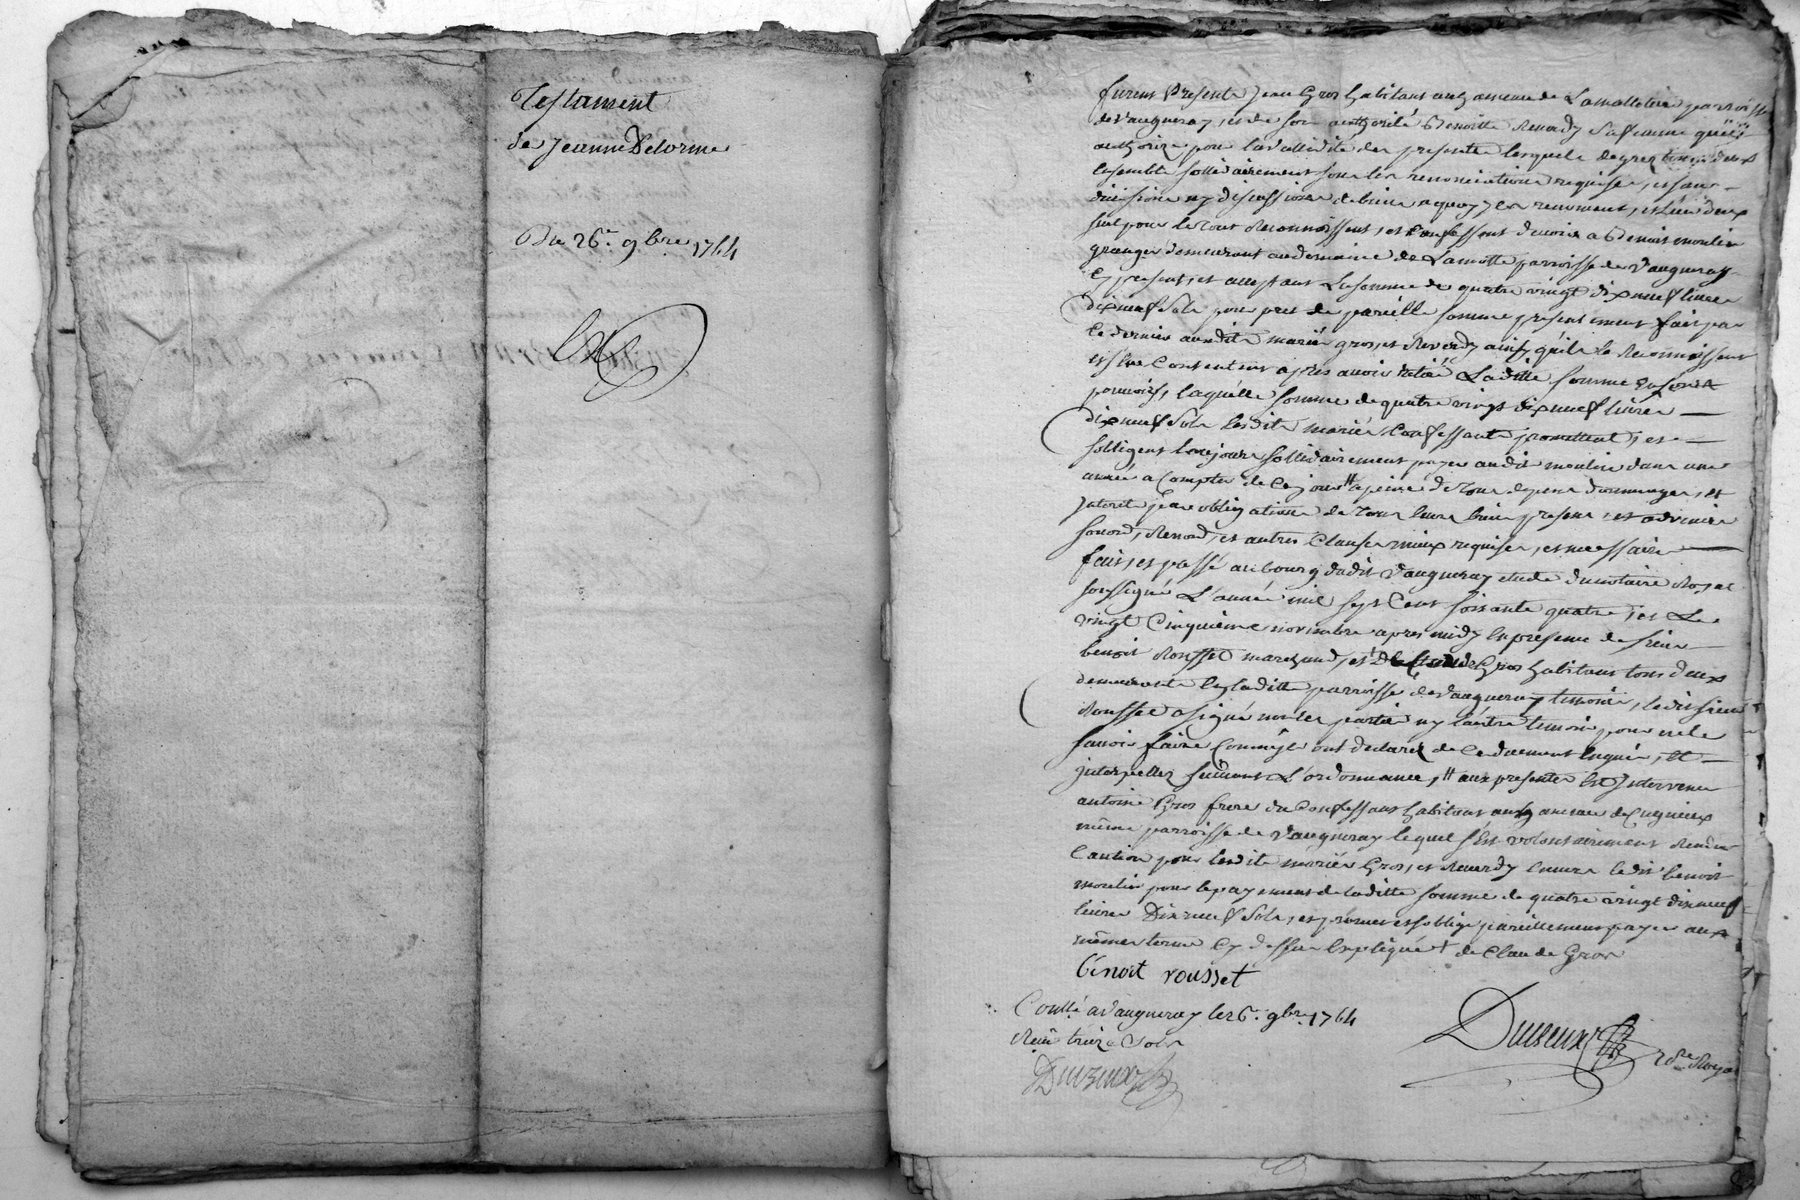 Testament
de Jeanne Delorme
Du 26e. 9bre. 1764
furent Presents Jean Gros habitant au hameau de Lamalletiere parroisse
de Vaugneray, et de son authorité Benoitte Reverdy sa femme qu'il
authorize pour la vallidité des presentes lesquels de grez tous deux
Ensemble sollidairement sous les renonciations requises, et sans
division ny discussion de biens a quoy ils renoncent, et l'un deux
seul pour le tout Reconnoissent, et Confessent devoir a Benoit moulin
granger demeurant au domaine de Lamotte parroisse de Vaugneray
Cy present, et acceptant La somme de quatre vingt dix neuf livres
dix neuf sols pour pret de pareille somme presentement fait par
Ce dernier auxdits mariés gros, et Reverdy ainsy qu'ils le Reconnoissent
et s'en Contentent après avoir retiré Laditte somme En
pouvoir, laquelle somme de quatre vingt dix neuf livres
dix neuf sols lesdits mariés Confessants promettent, et
s'obligent toujours sollidairement payer audit moulin dans une
année a Compter de Ce jour # a peine de tous depens dommages, et
Interets par obligation de tous leurs biens presents et advenir
renond, et autres Clauses mieux requises, et necessaires
fait, et passé au bourg dudit Vaugneray etude du notaire Royal
soussigné L'année mil sept Cent soixante quatre, et Le
vingt Cinquieme novembre apres midy En presence de sieur
benoit Rousset marchand, et Gros habitants tous deux
demeurants En laditte parroisse de Vaugneray temoins, ledit sieur
Rousset a signé non les parties ny l'autre temoin pour ne le
savoir faire Comme ils ont declarez de Ce duement Enquis, et
interpellez suivant L'ordonnance, # aux presentes Est Intervenu
antoine Gros frere du Confessant habitant au hameau de
même parroisse de Vaugneray lequel s'est volontairement Rendu
Caution pour lesdits mariés Gros, et Reverdy Envers ledit benoit
moulin pour le payement de laditte somme de quatre vingt dix neuf
livres Dix neuf sols, et promet et s'oblige pareillement payer aux
mêmes termes Cy dessus Expliqués + de Claude Gros
benoit rousset
Contlé a Vaugneray le 26e. 9bre. 1764
Reçu treize sols